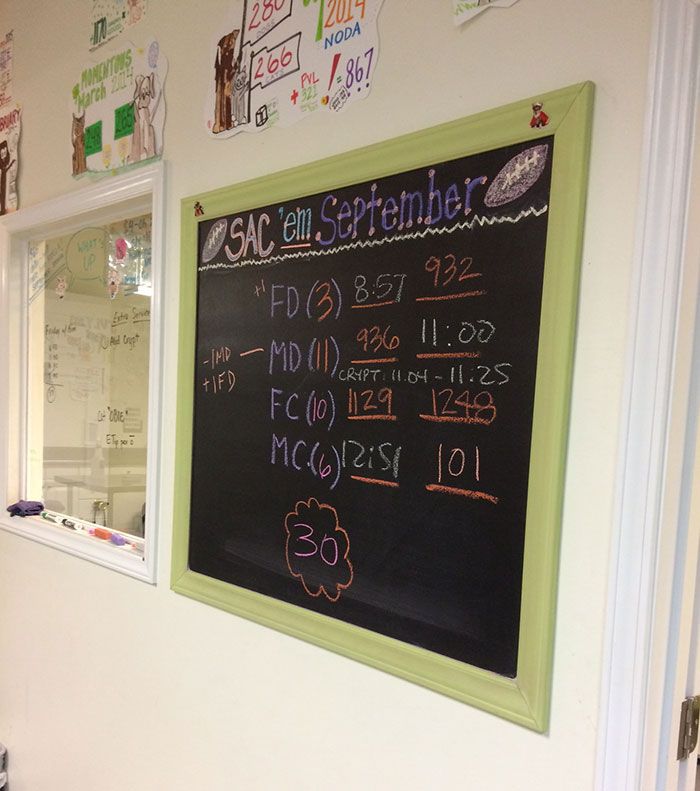 280
266
CATS
2014
NODA
+ PVL
321
! = 867
MOMENTOUS
March
WHAT'S
UP
Extra Service
SAC 'em September
+1 FD (3) 8:57 932
-1MD — MD (11) 936 11:00
+1FD
CRYPT: 11:04 - 11:25
FC (10) 1129 1248
MC (6) 12:51 101
30